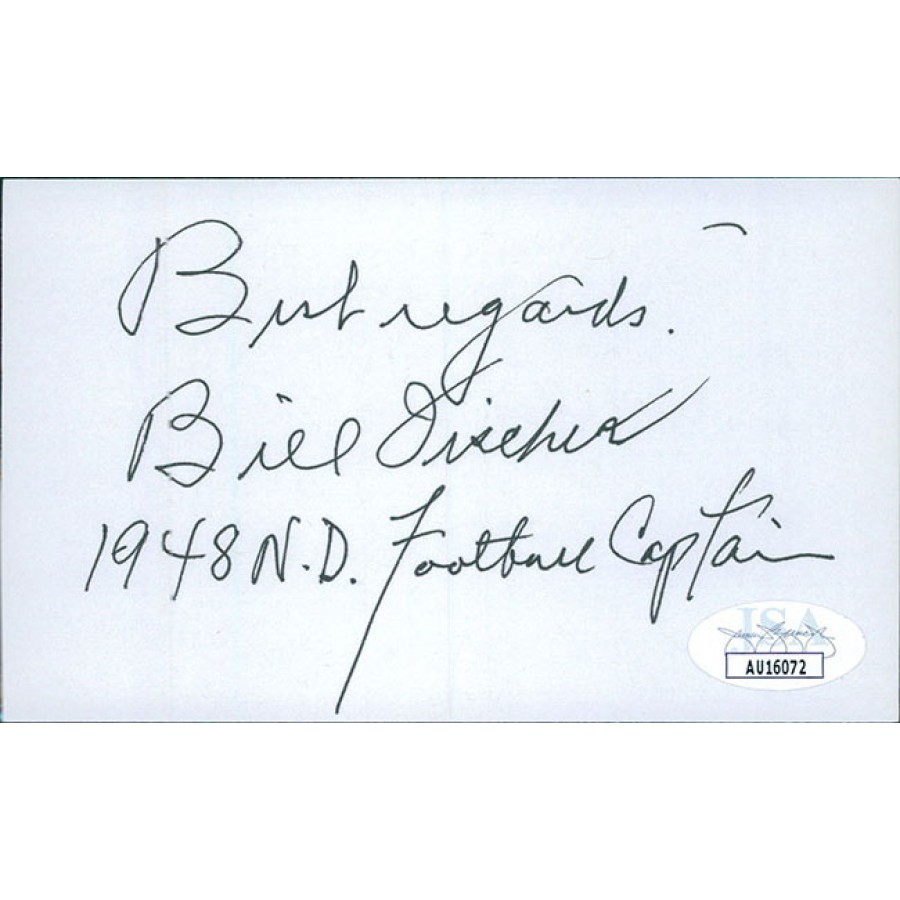 Best regards.
Bill Fischer
1948 N.D. Football Captain
JSA
AU16072